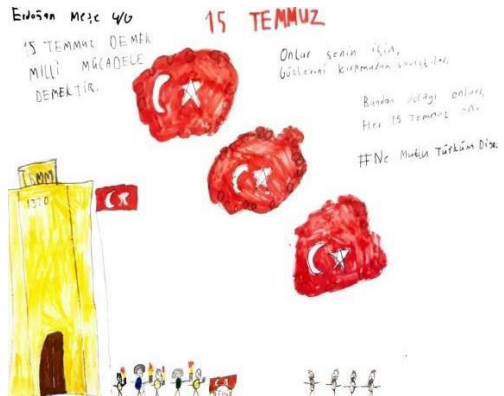 Erdoğan Meşe 4/G
15 TEMMUZ
15 TEMMUZ DEMEK
MİLLİ MÜCADELE
DEMEKTİR.
Onlar senin için,
Gözlerini kırpmadan savaştılar.
Bundan dolayı onları,
Her 15 Temmuz
#Ne Mutlu Türküm
TBMM
1920